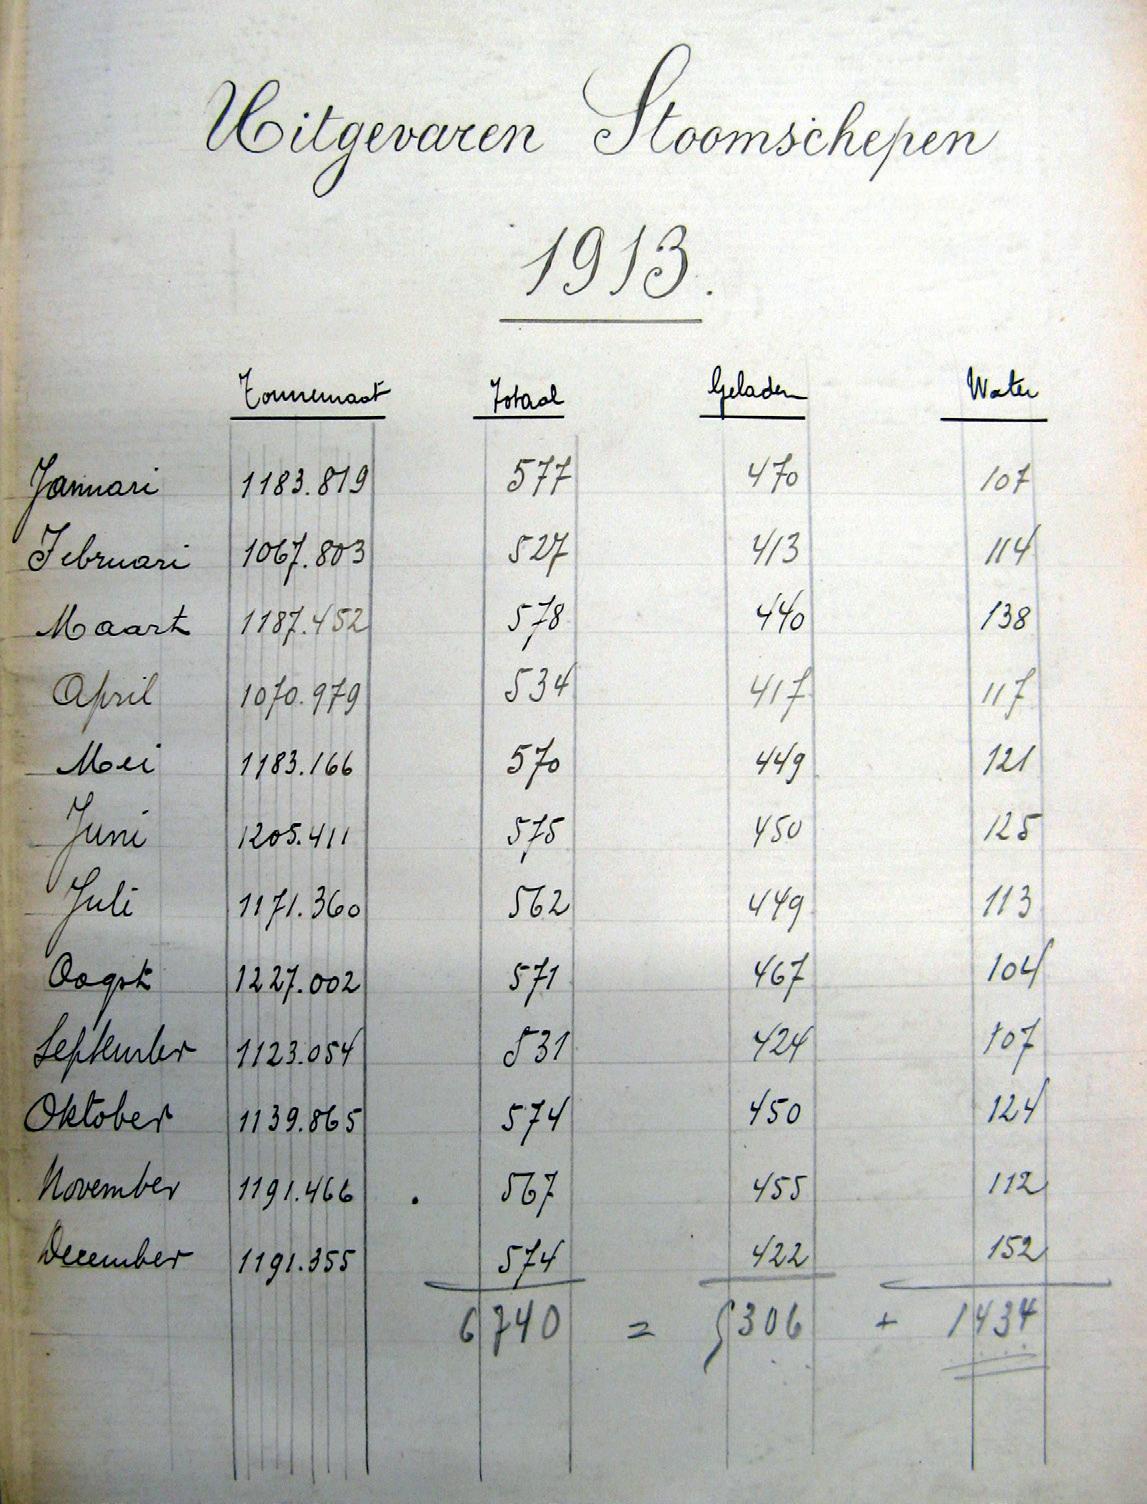 Uitgevaren Stoomschepen
1913.
Tonnemaat Totaal Geladen Water
Januari 1183.819 577 470 107
Februari 1067.803 527 413 114
Maart 1187.452 578 440 138
April 1070.979 534 417 117
Mei 1183.166 570 449 121
Juni 1205.411 575 450 125
Juli 1171.360 562 449 113
Oogst 1227.002 571 467 104
September 1123.054 531 424 107
Oktober 1139.865 574 450 124
November 1191.466 . 567 455 112
December 1191.355 574 422 152
6740 = 5306 + 1434